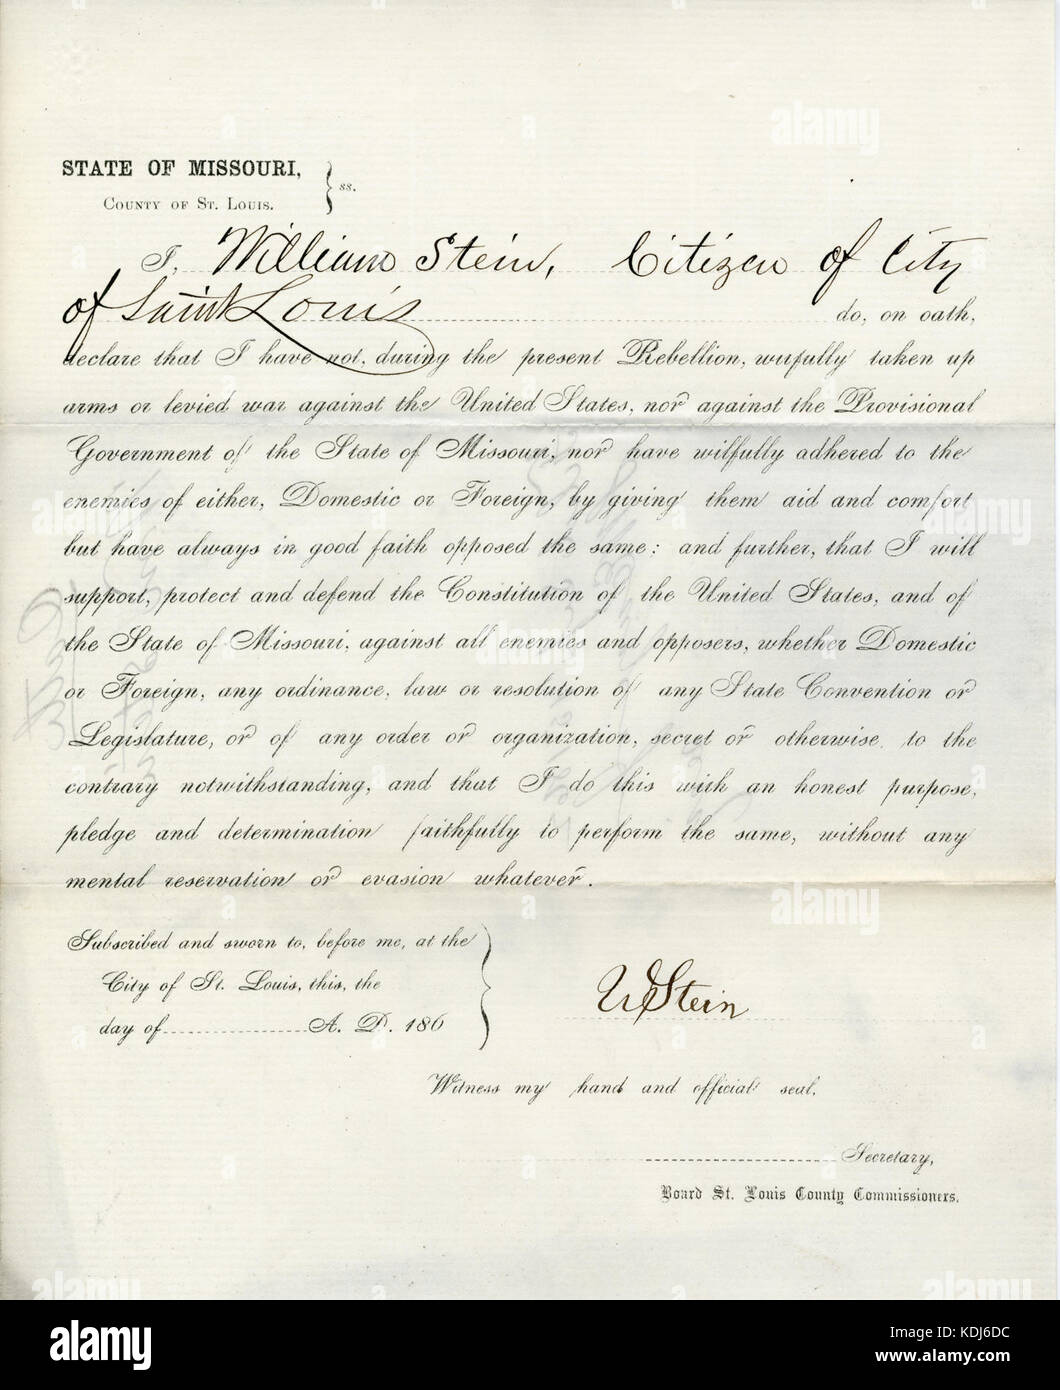 STATE OF MISSOURI,
COUNTY OF ST. LOUIS. } ss.
I, William Stein, Citizen of City
of Saint Louis do, on oath,
declare that I have not, during the present Rebellion, wilfully taken up
arms or levied war against the United States, nor against the Provisional
Government of the State of Missouri, nor have wilfully adhered to the
enemies of either, Domestic or Foreign, by giving them aid and comfort
but have always in good faith opposed the same: and further, that I will
support, protect and defend the Constitution of the United States, and of
the State of Missouri, against all enemies and opposers, whether Domestic
or Foreign, any ordinance, law or resolution of any State Convention or
Legislature, or of any order or organization, secret or otherwise, to the
contrary notwithstanding, and that I do this with an honest purpose,
pledge and determination faithfully to perform the same, without any
mental reservation or evasion whatever.
Subscribed and sworn to, before me, at the
City of St. Louis, this, the
day of A. D. 186
W Stein
Witness my hand and official seal,
Secretary,
Board St. Louis County Commissioners.
alamy
Image ID: KDJ6DC
www.alamy.com